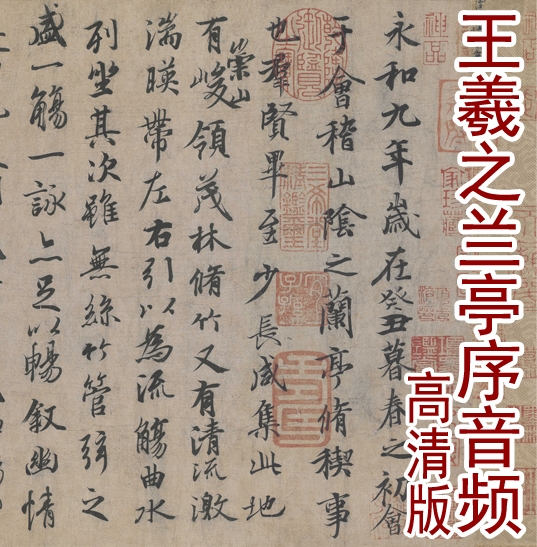 王羲之兰亭序音频
高清版
永和九年歲在癸丑暮春之初會
于會稽山陰之蘭亭脩稧事
也群賢畢至少長咸集此地
有崇山峻領茂林脩竹又有清流激
湍暎帶左右引以為流觴曲水
列坐其次雖無絲竹管弦之
盛一觴一詠亦足以暢叙幽情